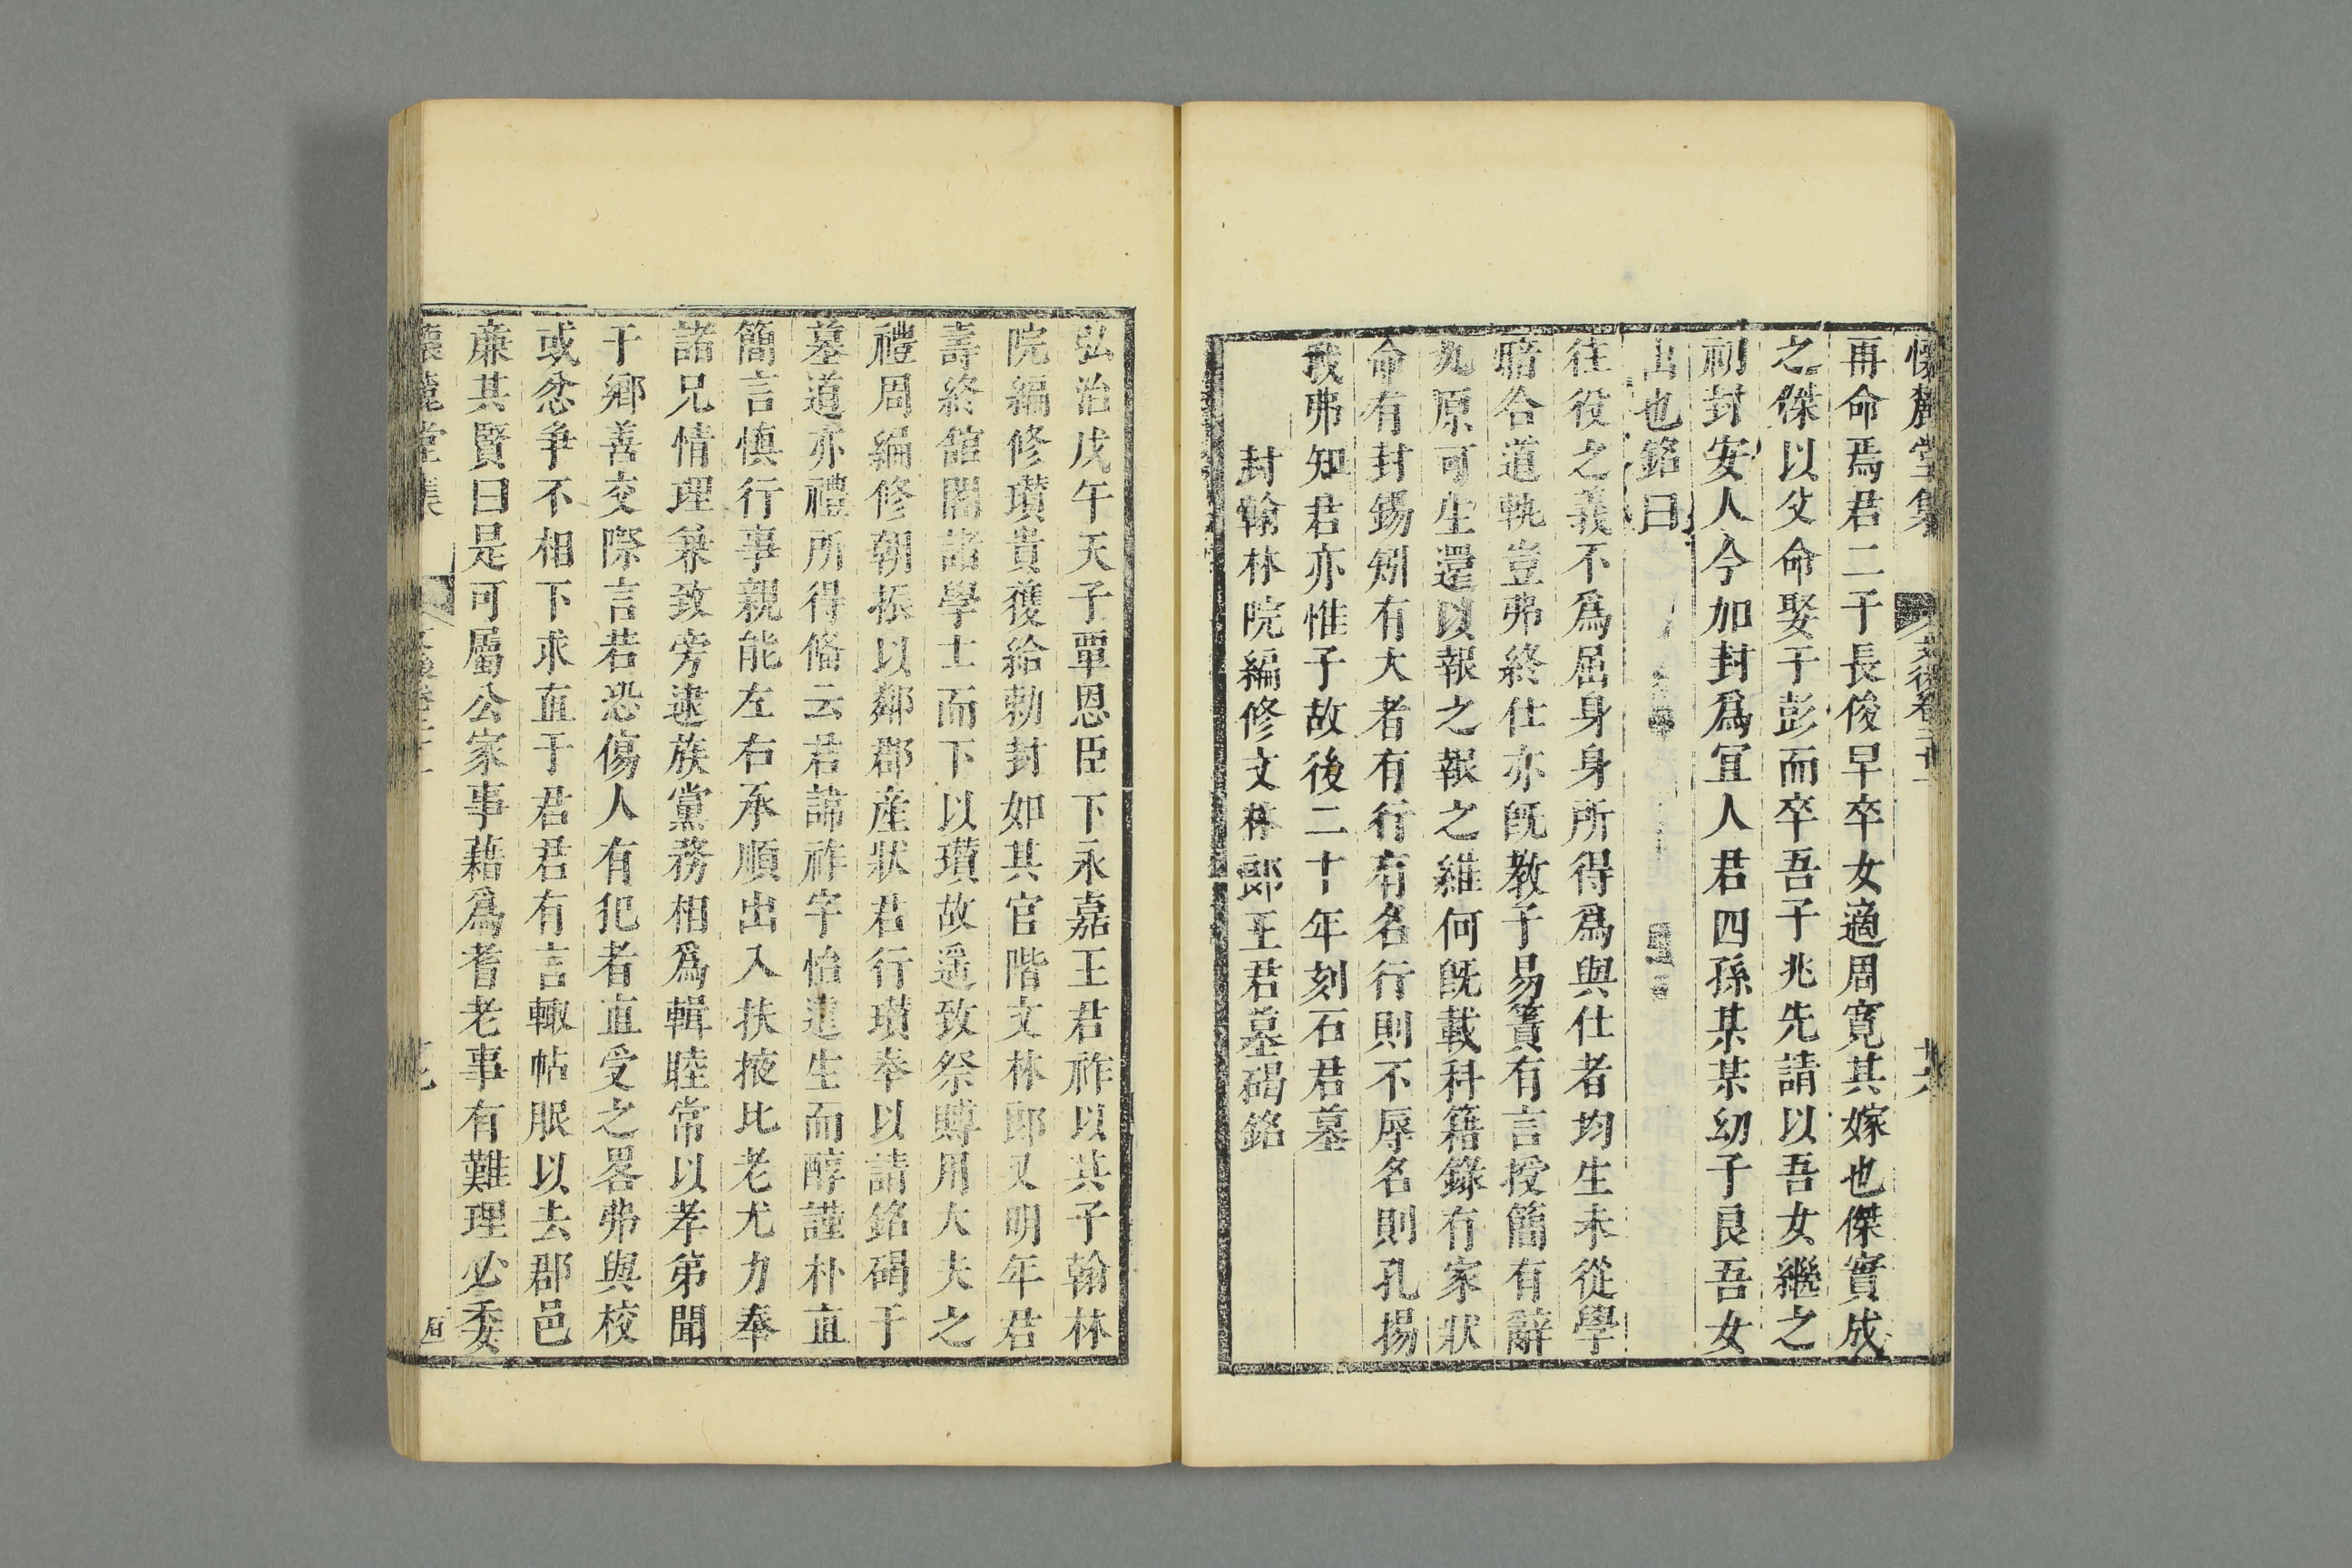 懷麓堂集 文後卷二十 十六
再命焉君二子長俊早卒女適周寬其嫁也傑實成
之傑以父命娶于彭而卒吾子兆先請以吾女繼之
初封安人今加封爲宜人君四孫某某幼子良吾女
出也銘曰
往役之義不爲屈身身所得爲與仕者均生未從學
暗合道軌豈弗終仕亦旣教子易簀有言授簡有辭
九原可生還以報之報之維何旣載科籍錄有家狀
命有封錫矧有大者有行有名行則不辱名則孔揚
我弗知君亦惟子故後二十年刻石君墓
封翰林院編修文林郎王君墓碣銘
弘治戊午天子覃恩臣下永嘉王君祚以其子翰林
院編修瓚貴獲給勅封如其官階文林郎又明年君
壽終館閣諸學士而下以瓚故遥致祭賻用大夫之
禮周編修朝振以鄰郡産狀君行瓚奉以請銘碣于
墓道亦禮所得偹云君諱祚字怡進生而醇謹朴直
簡言慎行事親能左右承順出入扶掖比老尤力奉
諸兄情理兼致旁逮族黨務相爲輯睦常以孝弟聞
于鄉善交際言若恐傷人有犯者直受之畧弗與校
或忿争不相下求直于君君有言輙帖服以去郡邑
廉其賢曰是可屬公家事藉爲耆老事有難理必委
懷麓堂集